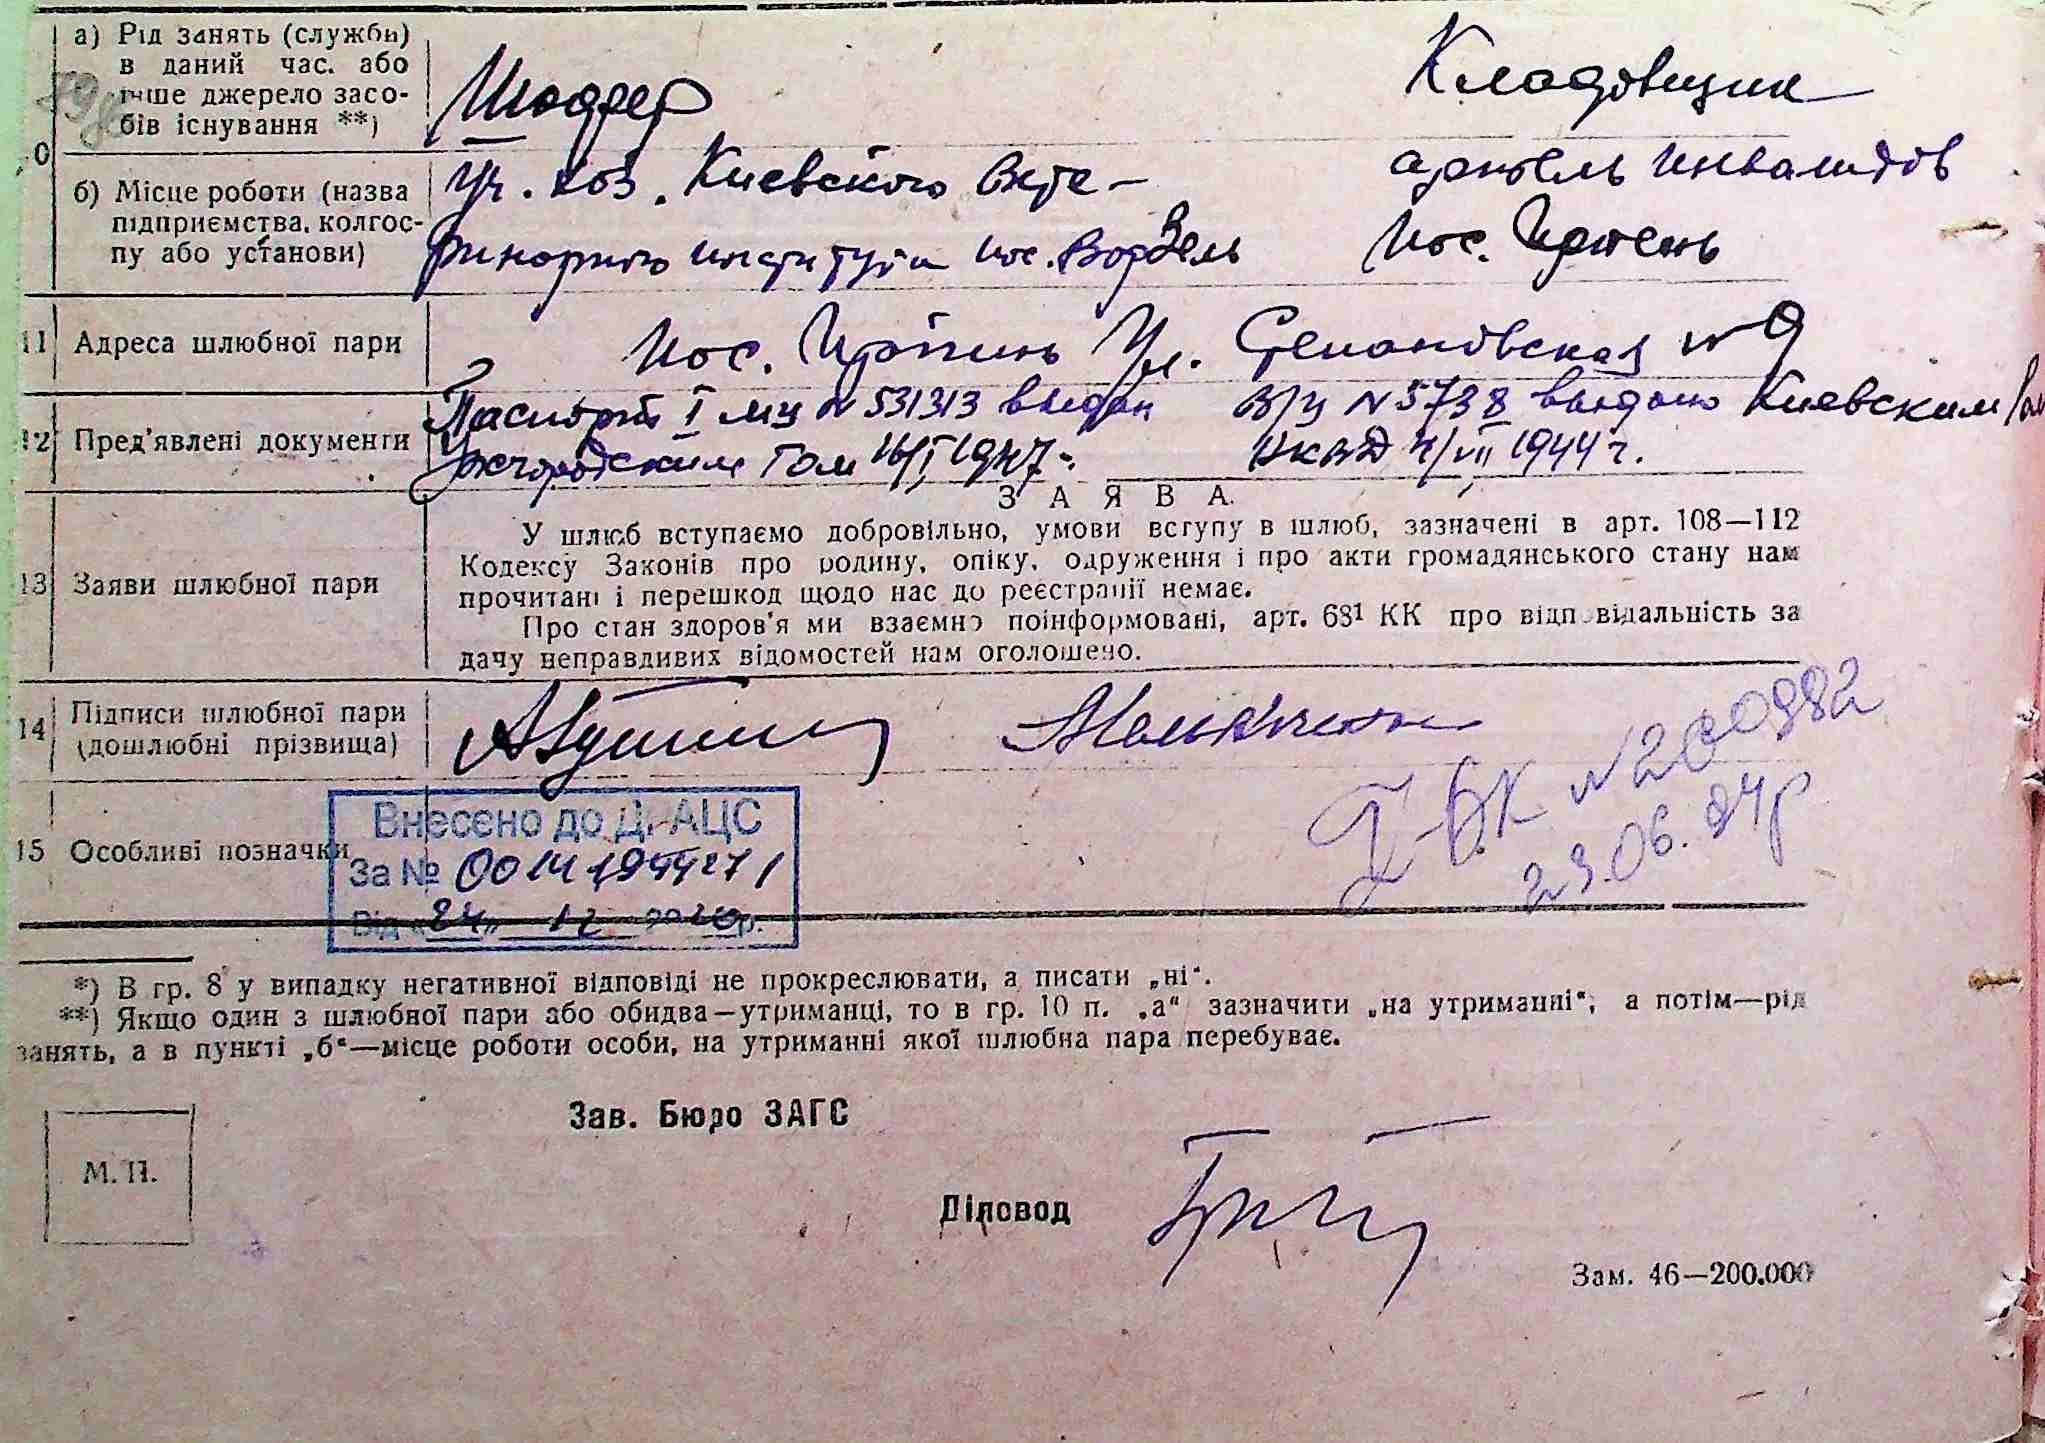 а) Рід занять (служби) в даний час. або інше джерело засобів існування **)
Шофер
Кладовщик
10
б) Місце роботи (назва підприємства, колгоспу або установи)
Уч. хоз. Киевского Вете-
ринарного института пос. Ворзель
артель инвалидов
пос. Ирпень
11 Адреса шлюбної пари
пос. Ирпинь Ул. Степановская № 9
12 Пред'явлені документи
Паспорт I МЦ № 531313 выдан
Ужгородским ГОМ 16/I 1947 г.
В/у № 5738 выдано Киевским
НКВД 4/VII 1944 г.
З А Я В А
13 Заяви шлюбної пари
У шлюб вступаємо добровільно, умови вступу в шлюб, зазначені в арт. 108—112
Кодексу Законів про родину, опіку, одруження і про акти громадянського стану нам
прочитані і перешкод щодо нас до реєстрації немає.
Про стан здоров'я ми взаємно поінформовані, арт. 68¹ КК про відповідальність за
дачу неправдивих відомостей нам оголошено.
14 Підписи шлюбної пари
(дошлюбні прізвища)
15 Особливі позначки
Внесено до ДРАЦС
За №
Від «24» 12 2020р.
23.06.94р
*) В гр. 8 у випадку негативної відповіді не прокреслювати, а писати „ні“.
**) Якщо один з шлюбної пари або обидва—утриманці, то в гр. 10 п. „а“ зазначити „на утриманні“, а потім—рід
занять, а в пункті „б“—місце роботи особи, на утриманні якої шлюбна пара перебуває.
Зав. Бюро ЗАГС
М. П.
Діловод
Зам. 46—200.000